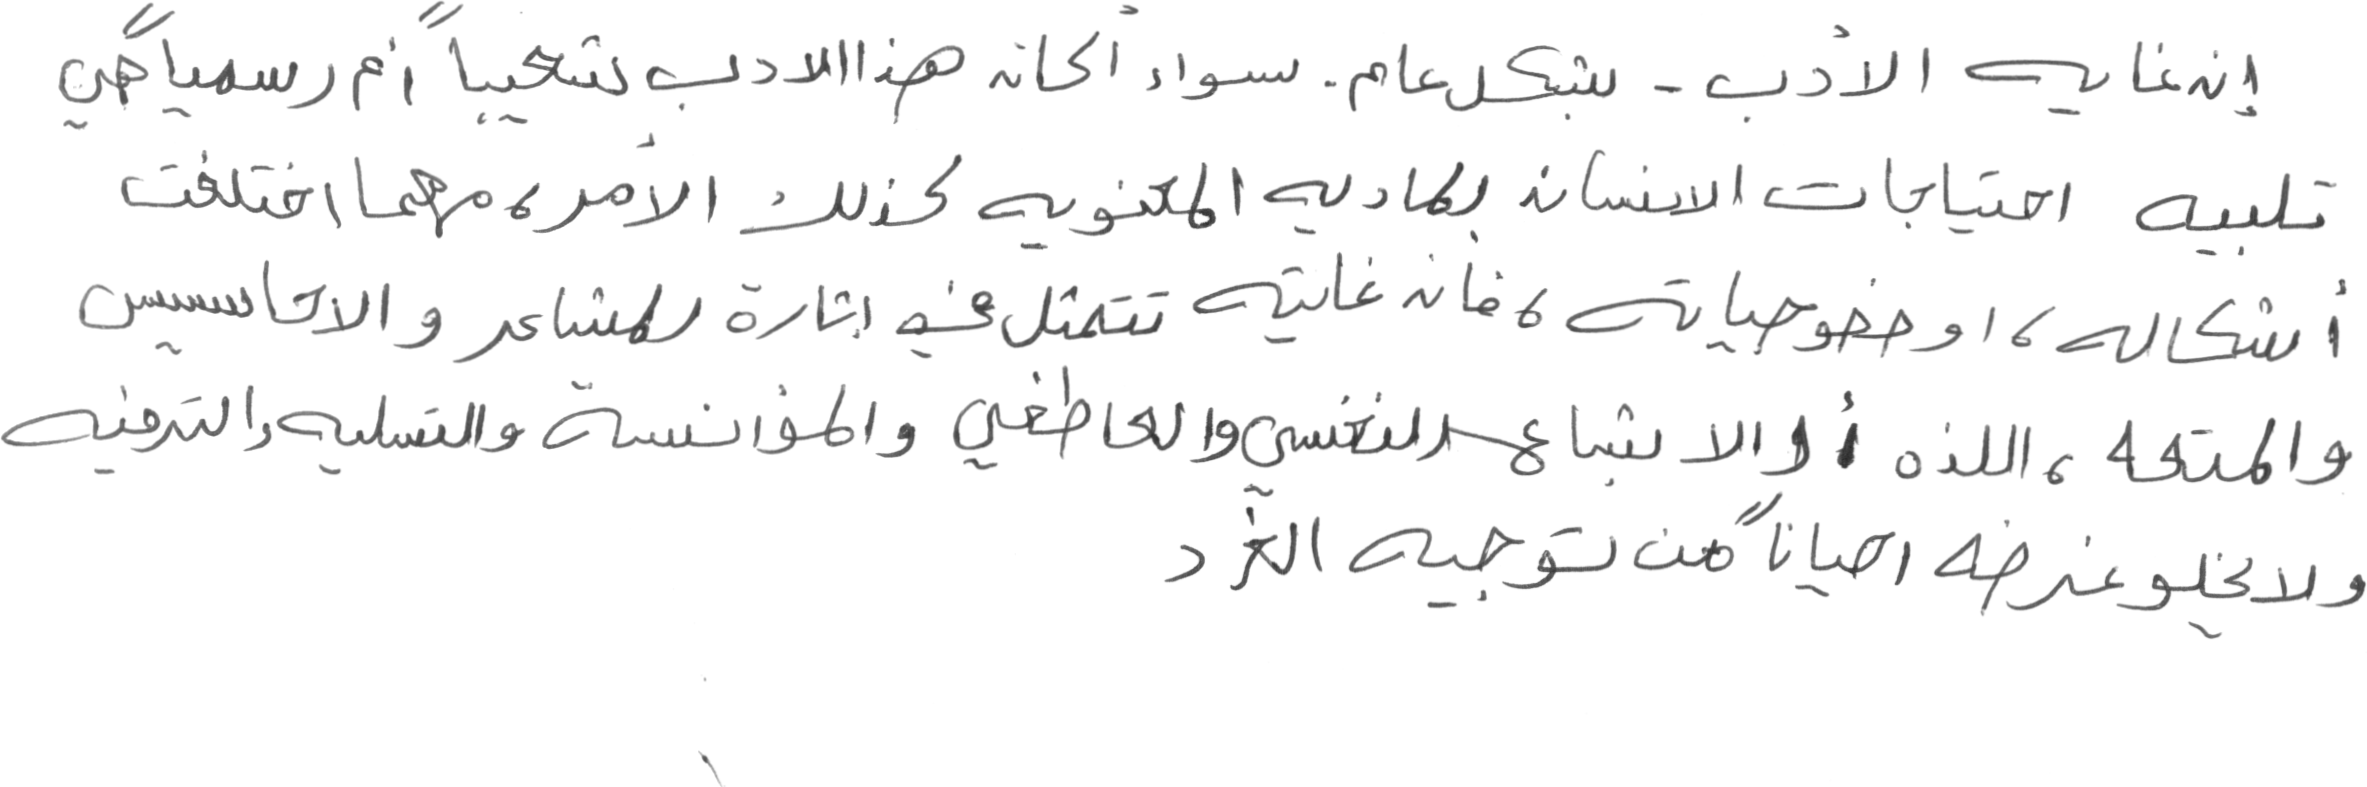 إن غايه الأدب - بشكل عام . سواء أكان هذا الادب شعبياً أم رسمياً هي
تلبيه احتياجات الانسان الماديه المعنويه كذلك الأمر ، مهما اختلفت
أشكاله ، او خصوصياته ، فان غايته تتمثل في اثارة المشاعر والاحاسيس
والمتعه ، اللذه أو الاشباع النفسي والعاطفي والمؤانسة والتسليه والترفيه
ولا يخلو غرضه احياناً من توجيه الفرد